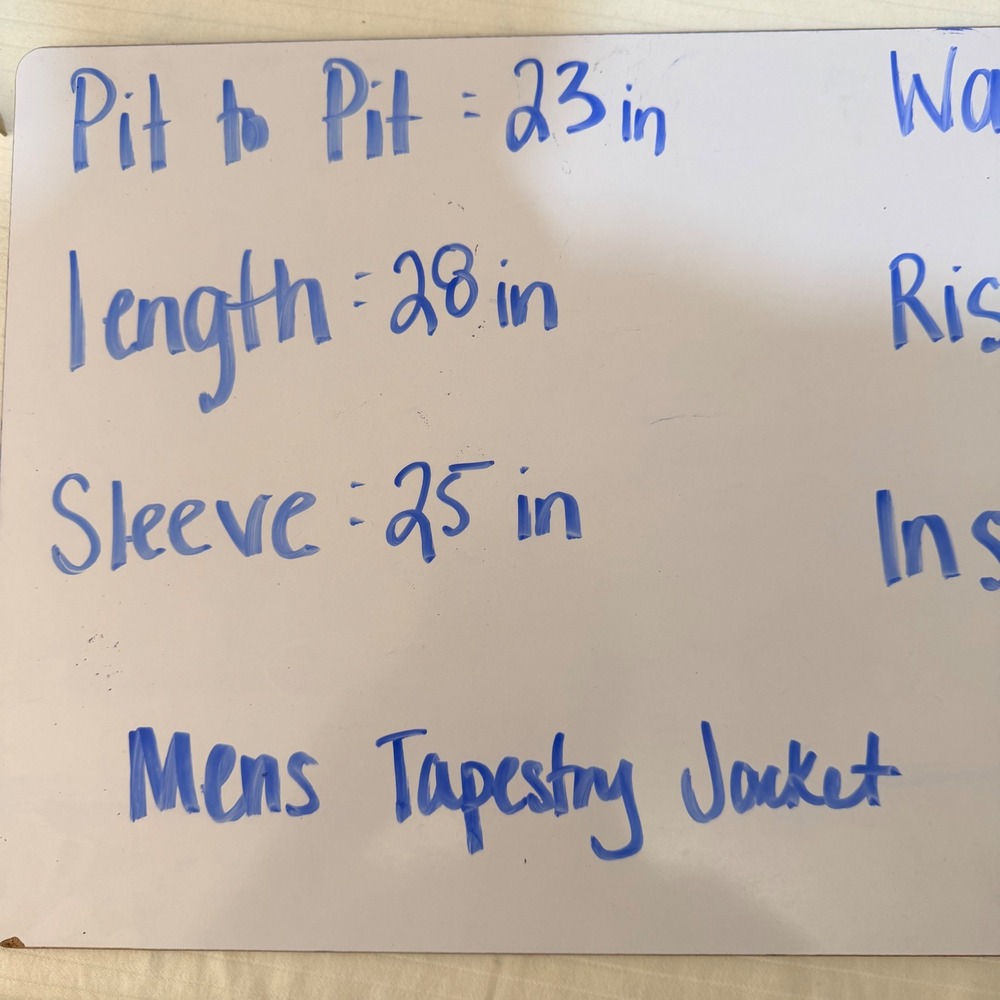 Pit to Pit = 23 in
length = 28 in
Sleeve = 25 in
Mens Tapestry Jacket